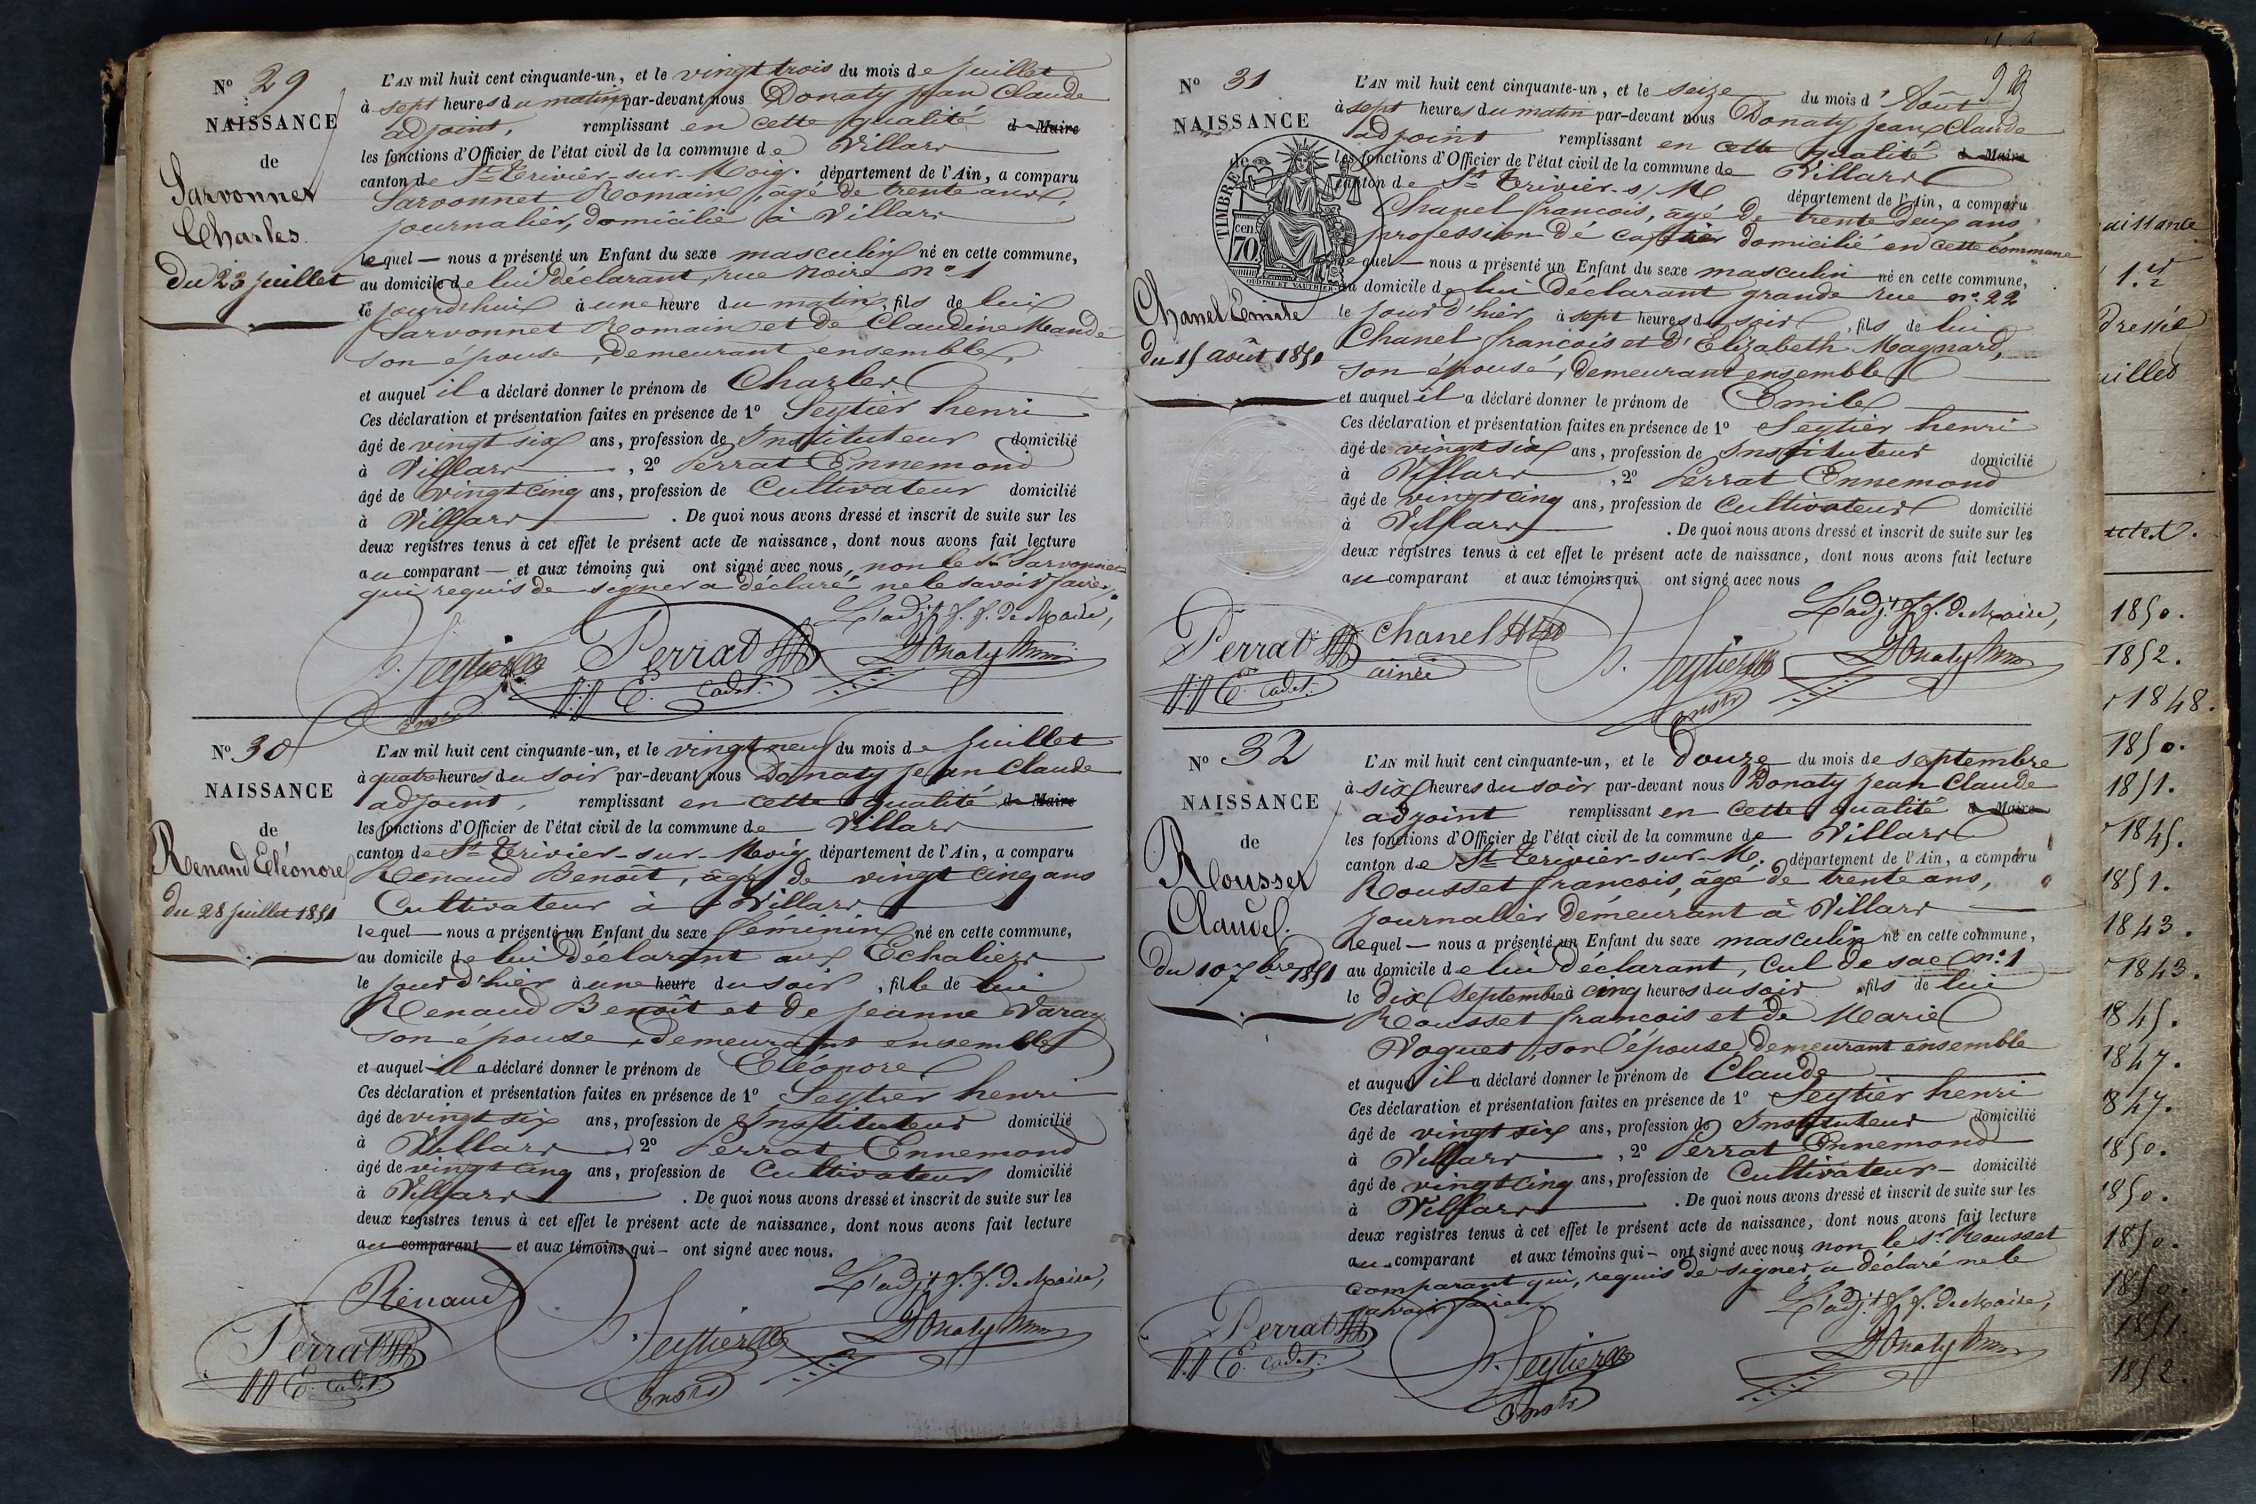 N° 29
NAISSANCE
de
Sarvonnet
Charles
du 23 juillet
L'AN mil huit cent cinquante-un, et le vingt trois du mois de juillet
à sept heures du matin par-devant nous Donaty jean Claude
adjoint, remplissant en cette qualité de Maire
les fonctions d'Officier de l'état civil de la commune de Villars
canton de St Trivier-sur-Moig. département de l'Ain, a comparu
Sarvonnet Romain, âgé de trente ans,
journalier, domicilié à Villars
lequel nous a présenté un Enfant du sexe masculin né en cette commune,
au domicile de lui déclarant, rue noire n° 1
le jourd'hui à une heure du matin, fils de lui
Sarvonnet Romain et de Claudine Mande
son épouse, demeurant ensemble,
et auquel il a déclaré donner le prénom de Charles
Ces déclaration et présentation faites en présence de 1° Seytier henri
âgé de vingt six ans, profession de Instituteur domicilié
à Villars, 2° Perrat Ennemond
âgé de vingt cinq ans, profession de Cultivateur domicilié
à Villars. De quoi nous avons dressé et inscrit de suite sur les
deux registres tenus à cet effet le présent acte de naissance, dont nous avons fait lecture
au comparant et aux témoins qui ont signé avec nous, non le Sr Sarvonnet
qui requis de signer a déclaré ne le savoir faire.
L'adjt f. f. de Maire,
h. Seytier Perrat Donaty
instr E. cadet.
N° 30
NAISSANCE
de
Renaud Eléonore
du 28 juillet 1851
L'AN mil huit cent cinquante-un, et le vingt neuf du mois de juillet
à quatre heures du soir par-devant nous Donaty jean Claude
adjoint, remplissant en cette qualité de Maire
les fonctions d'Officier de l'état civil de la commune de Villars
canton de St Trivier-sur-Moig département de l'Ain, a comparu
Renaud Benoît, âgé de vingt cinq ans
Cultivateur à Villars
lequel nous a présenté un Enfant du sexe féminin né en cette commune,
au domicile de lui déclarant aux Echaliers
le jour d'hier à une heure du soir, fille de lui
Renaud Benoît et de jeanne Varay
son épouse, demeurant ensemble
et auquel il a déclaré donner le prénom de Eléonore
Ces déclaration et présentation faites en présence de 1° Seytier henri
âgé de vingt six ans, profession de Instituteur domicilié
à Villars 2° Perrat Ennemond
âgé de vingt cinq ans, profession de Cultivateur domicilié
à Villars. De quoi nous avons dressé et inscrit de suite sur les
deux registres tenus à cet effet le présent acte de naissance, dont nous avons fait lecture
au comparant et aux témoins qui ont signé avec nous.
L'adjt f. f. de Maire,
Rénaud
Perrat h. Seytier Donaty
E. cadet. Instr
N° 31
NAISSANCE
de
TIMBRE
70 cen.
OUDINÉ ET VAUTHIER
Chanel Emile
du 15 août 1851
L'AN mil huit cent cinquante-un, et le seize du mois d'Août
à sept heures du matin par-devant nous Donaty jean Claude
adjoint remplissant en cette qualité de Maire
les fonctions d'Officier de l'état civil de la commune de Villars
canton de St Trivier-s/M département de l'Ain, a comparu
Chanel françois, âgé de trente deux ans
profession de domicilié en cette commune
lequel nous a présenté un Enfant du sexe masculin né en cette commune,
au domicile de lui déclarant grande rue n° 22
le jour d'hier à sept heures du soir, fils de lui
Chanel françois et d'Elizabeth Magnard,
son épouse, demeurant ensemble
et auquel il a déclaré donner le prénom de Emile
Ces déclaration et présentation faites en présence de 1° Seytier henri
âgé de vingt six ans, profession de Instituteur domicilié
à Villars, 2° Perrat Ennemond
âgé de vingt cinq ans, profession de Cultivateur domicilié
à Villars. De quoi nous avons dressé et inscrit de suite sur les
deux registres tenus à cet effet le présent acte de naissance, dont nous avons fait lecture
au comparant et aux témoins qui ont signé avec nous
L'adjt f. f. de Maire,
Perrat chanel h. Seytier Donaty
E. cadet. ainé instr
N° 32
NAISSANCE
de
Rousset
Claude.
du 10 7bre 1851
L'AN mil huit cent cinquante-un, et le Douze du mois de septembre
à six heures du soir par-devant nous Donaty jean Claude
adjoint remplissant en cette qualité de Maire
les fonctions d'Officier de l'état civil de la commune de Villars
canton de St Trivier-sur-M. département de l'Ain, a comparu
Rousset françois, âgé de trente ans,
journalier demeurant à Villars
lequel nous a présenté un Enfant du sexe masculin né en cette commune,
au domicile de lui déclarant, Cul de sac n° 1
le dix septembre à cinq heures du soir fils de lui
Rousset françois et de Marie
Voguet, son épouse, demeurant ensemble
et auquel il a déclaré donner le prénom de Claude
Ces déclaration et présentation faites en présence de 1° Seytier henri
âgé de vingt six ans, profession de Instituteur domicilié
à Villars, 2° Perrat Ennemond
âgé de vingt cinq ans, profession de Cultivateur domicilié
à Villars. De quoi nous avons dressé et inscrit de suite sur les
deux registres tenus à cet effet le présent acte de naissance, dont nous avons fait lecture
au comparant et aux témoins qui ont signé avec nous non le Sr Rousset
comparant qui, requis de signer, a déclaré ne le
savoir faire.
L'adjt f. f. de Maire,
Perrat h. Seytier Donaty
E. cadet. Instr
aissance
dressée
1850.
1852.
1848.
1850.
1851.
1845.
1851.
1843.
1843.
1845.
1847.
1847.
1850.
1850.
1850.
1850.
1851.
1852.